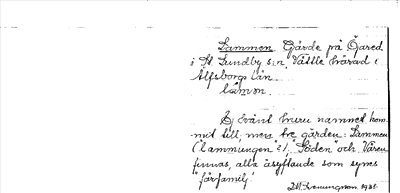 Lammen. Gärde på Öjared
i St. Lundby s:n, Vättle härad i
Älfsborgs län.
lámon.
Ej känt huru namnet kom-
mit till, men tre gärden: Lammen
("lammungen"), "Söden" och Våren
finnas, alla åsyftande som synes
fårfamilj
1921